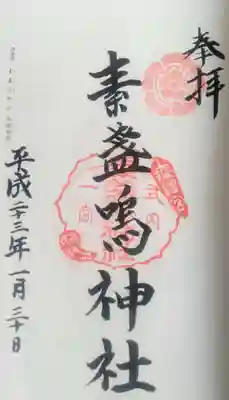 奉拝
素盞嗚神社
平成二十三年一月三十日